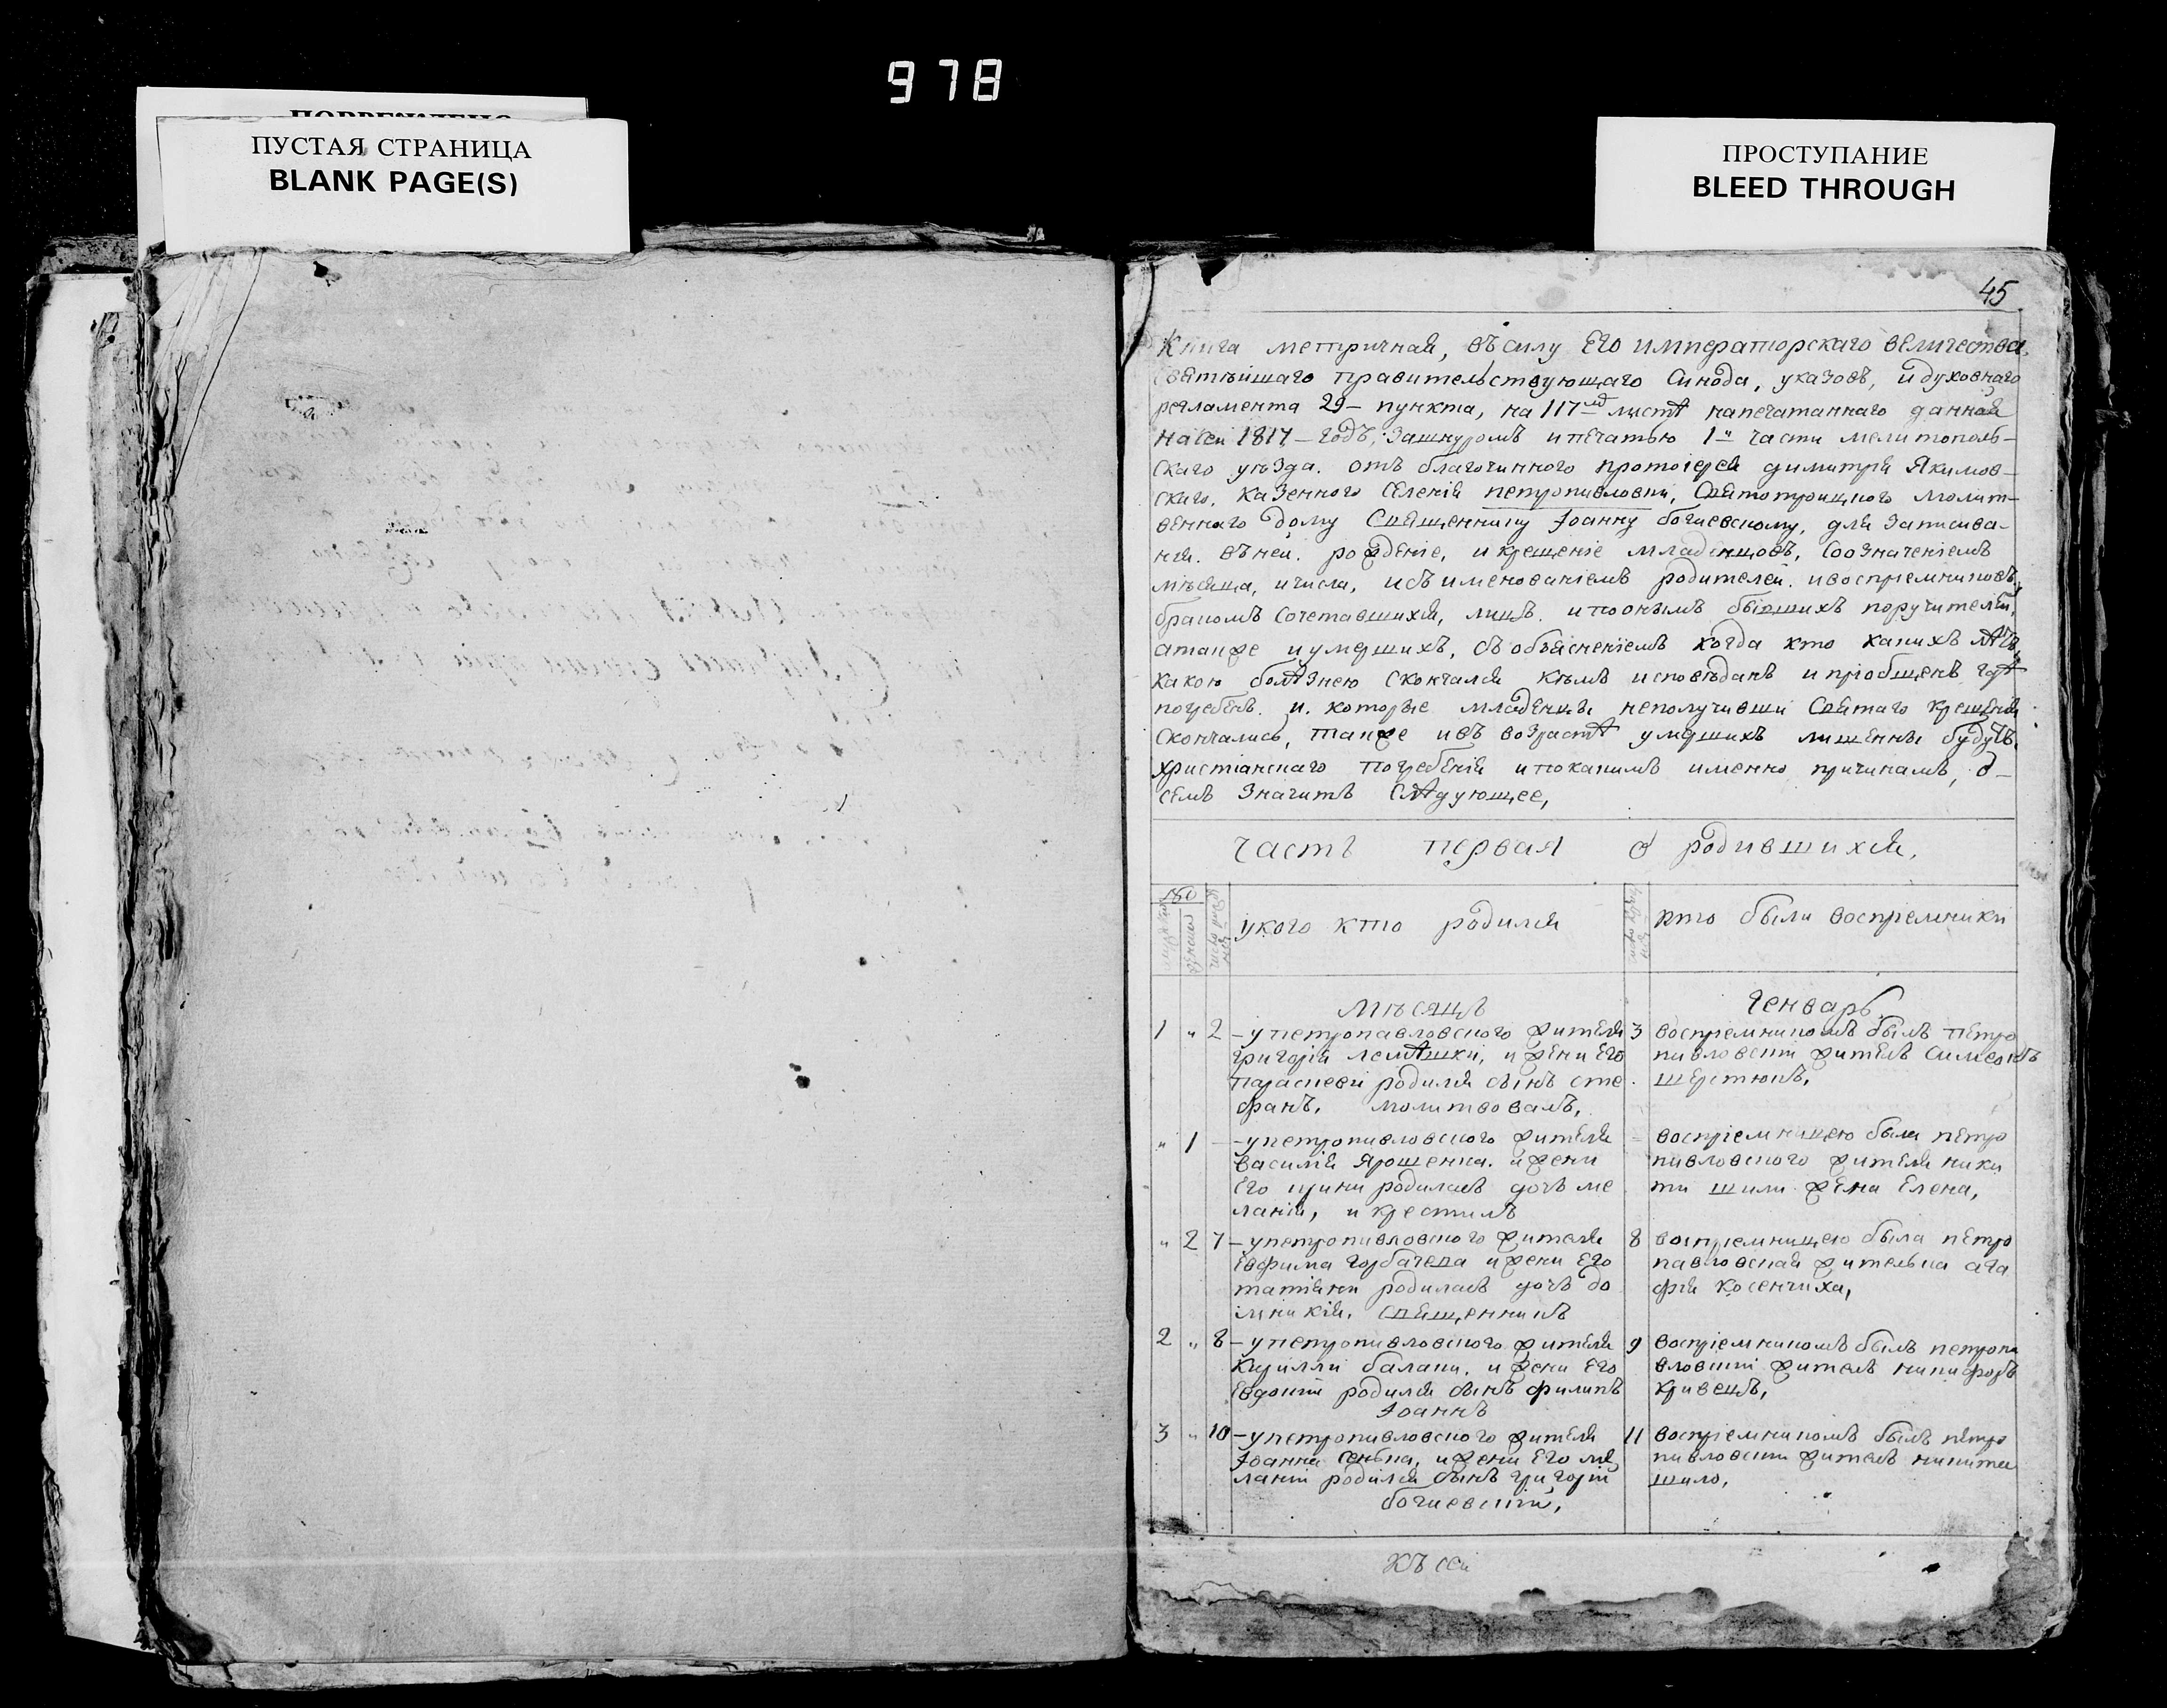 978
ПУСТАЯ СТРАНИЦА
BLANK PAGE(S)
ПРОСТУПАНИЕ
BLEED THROUGH
45
Книга метричная, въ силу Его императорскаго величества,
Святѣйшаго правительствующаго Синода, указовъ, и духовнаго
регламента 29 – пункта, на 117 листѣ напечатаннаго данная
на сей 1817 – годъ, зашнуромъ и печатью 1й части мелитополь-
скаго уѣзда. отъ благочинного протоіерея димитрія Якимов-
скаго, казенного селенія петропавловки, Святотроицкого молит-
веннаго дому Священнику Іоанну богиевскому, для записива-
нія. въ ней. рожденіе, и крещеніе младенцовъ, со означеніемъ
мѣсяца, и числа, и съ именованіемъ родителей. и воспріемниковъ,
бракомъ Сочетавшихся, лицъ. и по онымъ бывшихъ поручителей,
а также и умершихъ, съ объясненіемъ когда кто какихъ лѣтъ,
какою болѣзнею скончался кѣмъ исповѣданъ и пріобщенъ гдѣ
погребенъ. и. которые младенцы неполучивши Святаго крещенія
скончались, также и въ возрастѣ умершихъ лишенны будутъ,
христіанскаго погребенія и по какимъ именно причинамъ, о-
семъ значитъ слѣдующее,
часть первая о родившихся,
укого кто родился
кто были воспремники
мѣсяцъ
Генварь
1 „ 2 – у петропавловского жителя
григорія лемѣшки, и жени Его
параскеви родился сынъ сте
фанъ, молитвовалъ,
3 воспремникомъ былъ петро
павловскій житель симеонъ
шерстюкъ,
„ 1 – у петропавловского жителя
василія Ярошенка. и жени
Его ирини родилась дочь ме
ланія, и крестилъ
воспріемницею была петро
павловского жителя ники
ти шили жена Елена,
„ 2 7 – у петропавловского жителя
Евфима горбачева и жени Его
татіяни родилась дочь до
мникія. священникъ
8 воспремницею была петро
павловская жителька ага
фія косенчиха,
2 „ 8 – у петропавловского жителя
Кирилли балаки, и жени Его
Евдокіи родился сынъ филипъ
Іоаннъ
9 воспріемникомъ былъ петропа
вловскій житель никифоръ
кривецъ,
3 „ 10 – у петропавловского жителя
Іоанна сенька, и жени Его ме
ланіи родился сынъ григорій
богиевскій,
11 воспріемникомъ былъ петро
павловскій житель никита
шило,